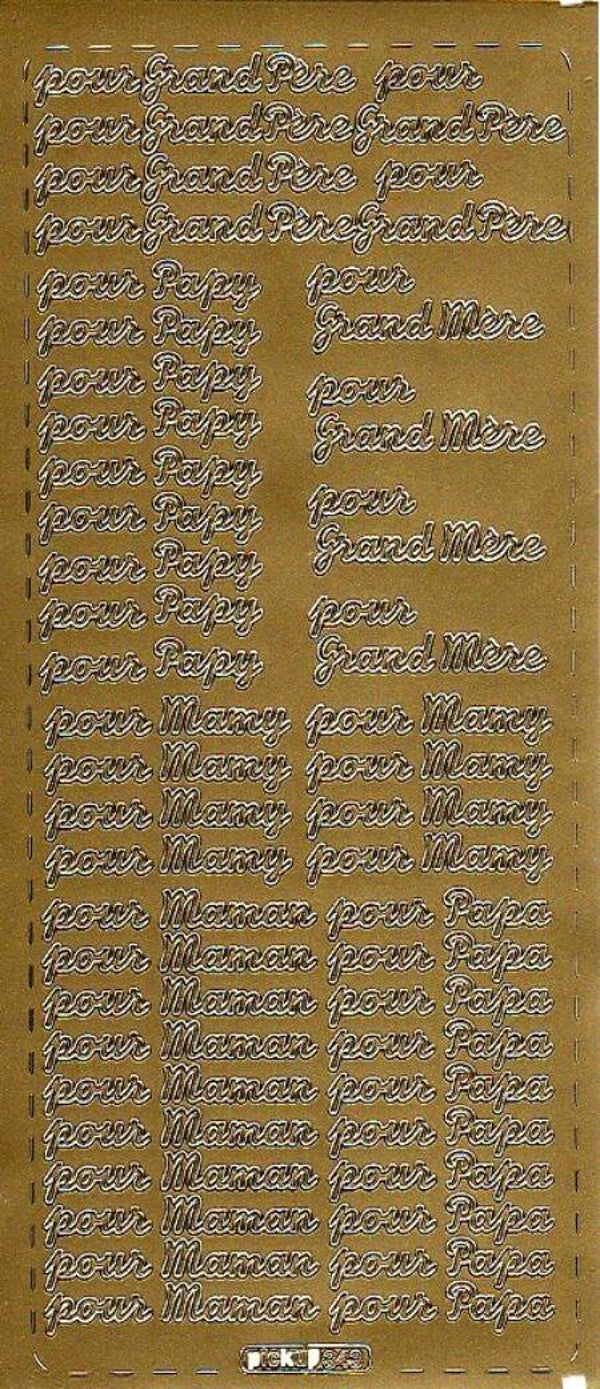 pour Grand Père pour
pour Grand Père Grand Père
pour Grand Père pour
pour Grand Père Grand Père
pour Papy pour
pour Papy Grand Mère
pour Papy pour
pour Papy Grand Mère
pour Papy
pour Papy pour
pour Papy Grand Mère
pour Papy pour
pour Papy Grand Mère
pour Mamy pour Mamy
pour Mamy pour Mamy
pour Mamy pour Mamy
pour Mamy pour Mamy
pour Maman pour Papa
pour Maman pour Papa
pour Maman pour Papa
pour Maman pour Papa
pour Maman pour Papa
pour Maman pour Papa
pour Maman pour Papa
pour Maman pour Papa
pour Maman pour Papa
pour Maman pour Papa
pickup 343